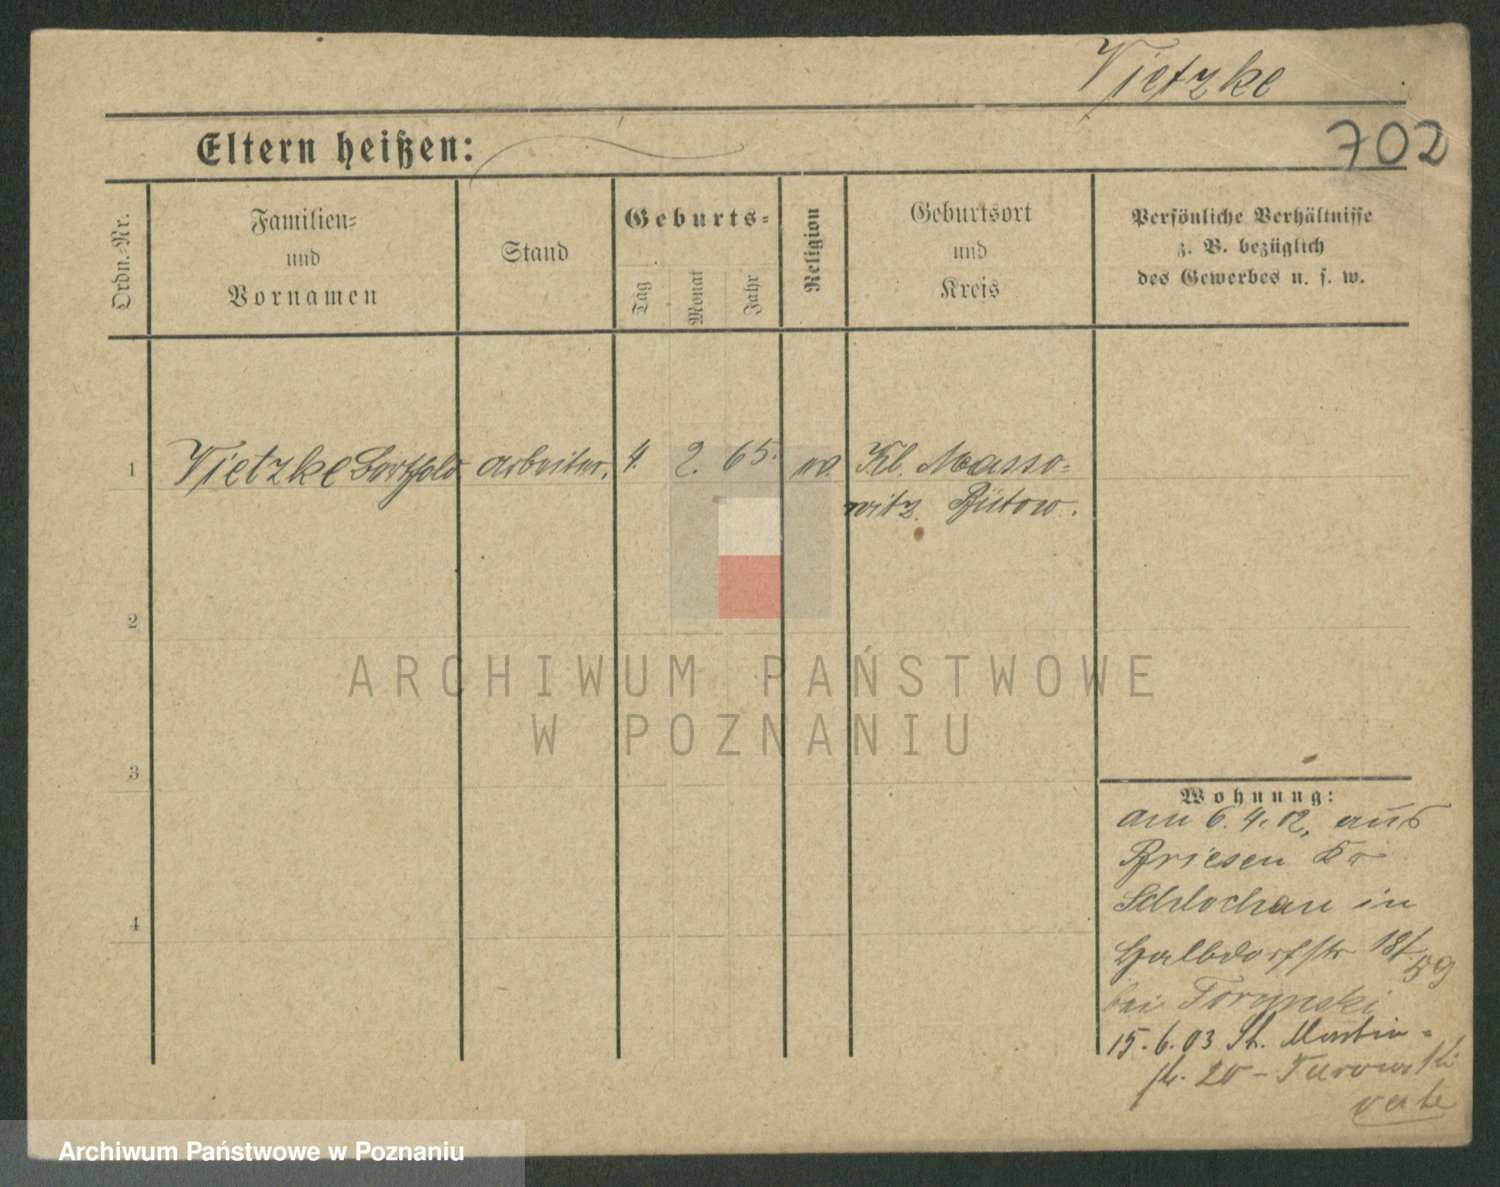 Vietzke
702
Eltern heißen:
Ordn.-Nr.
Familien-
und
Vornamen
Stand
Geburts-
Tag
Monat
Jahr
Religion
Geburtsort
und
Kreis
Persönliche Verhältnisse
z. B. bezüglich
des Gewerbes u. s. w.
1 Vietzke Berthold Arbeiter. 4. 2. 65. Kl. Masso-
witz. Bütow.
2
3
4
Wohnung:
am 6. 4. 02, aus
Briesen Kr
Schlochau in
Halbdorfstr 18/
bei
15. 6. 03 St. Martin-
str. 20 - Turowski
verte
ARCHIWUM PAŃSTWOWE
W POZNANIU
Archiwum Państwowe w Poznaniu